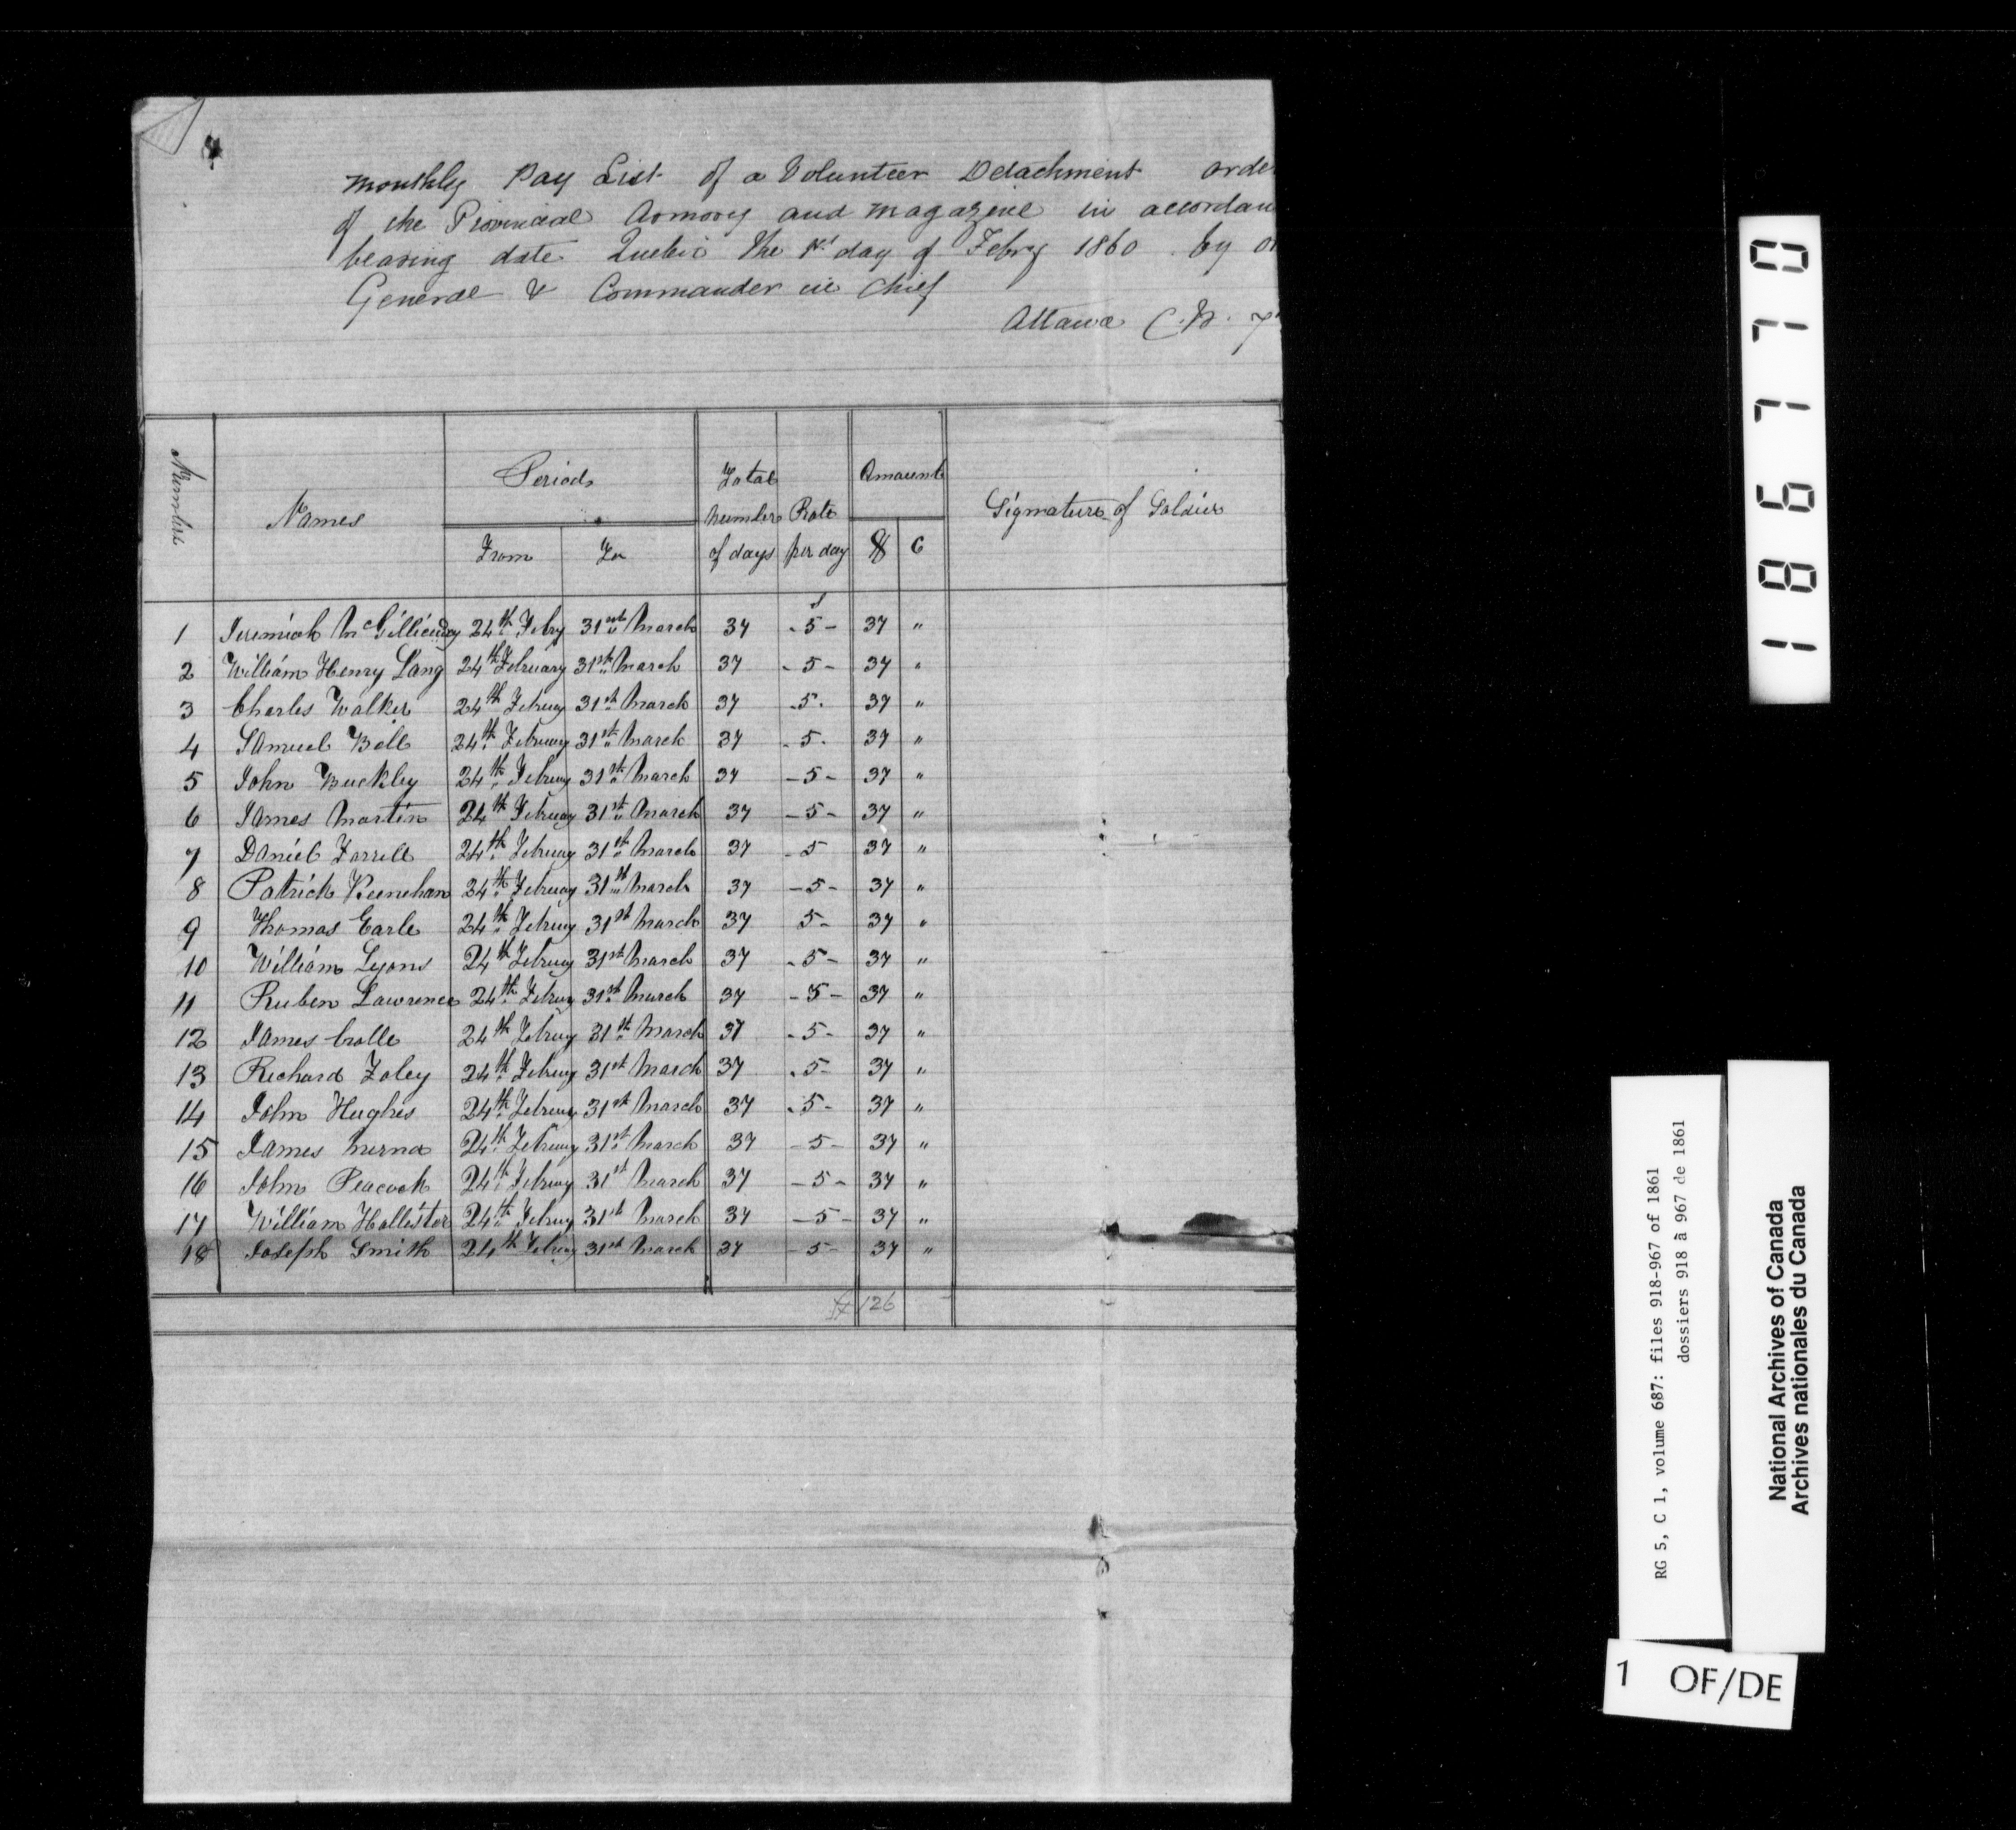 Monthly Pay List of a Volunteer Detachment orde
of the Provincial Armory and Magazine in accordan
bearing date Quebec the 1st day of Febry 1860 by or
General & Commander in Chief
Ottawa C.W.
Numbers Names Periods Total number of days Rate per day Amount Signature of Soldier
From To $ C
1 Jeremiah McGillicudy 24th Febry 31st March 37 s -5- 37 "
2 William Henry Lang 24th February 31st March 37 -5- 37 "
3 Charles Walker 24th Februay 31st March 37 -5- 37 "
4 Samuel Bell 24th Februay 31st March 37 -5- 37 "
5 John Buckley 24th Februay 31st March 37 -5- 37 "
6 James Martin 24th Februay 31st March 37 -5- 37 "
7 Daniel Farrell 24th Februay 31st March 37 -5 37 "
8 Patrick Keenehan 24th Februay 31st March 37 -5- 37 "
9 Thomas Earle 24th Februay 31st March 37 5- 37 "
10 William Lyons 24th Februay 31st March 37 -5- 37 "
11 Ruben Lawrence 24th Februay 31st March 37 -5- 37 "
12 James 24th Februay 31st March 37 -5- 37 "
13 Richard Foley 24th Februay 31st March 37 -5- 37 "
14 John Hughes 24th Februay 31st March 37 -5- 37 "
15 James 24th Februay 31st March 37 -5- 37 "
16 John Peacock 24th Februay 31st March 37 -5- 37 "
17 William Hollister 24th Februay 31st March 37 -5- 37 "
18 Joseph Smith 24th Februay 31st March 37 -5- 37 "
126
186770
RG 5, C 1, volume 687: files 918-967 of 1861
dossiers 918 à 967 de 1861
National Archives of Canada
Archives nationales du Canada
1 OF/DE